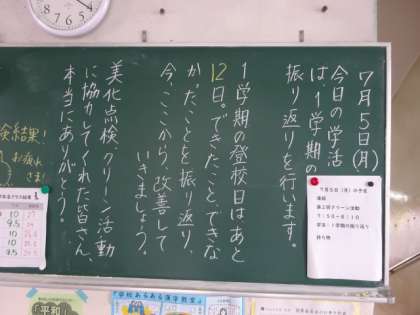 7月5日(月)
今日の学活
は、1学期の
振り返りを行います。
1学期の登校日はあと
12日。できたこと、できな
かったことを振り返り
今、ここから、改善して
いきましょう。
美化点検、クリーン活動
に協力してくれた皆さん、
本当にありがとう。
結果!
お疲れ
さま!
7月5日(月)の予定
第2回クリーン活動
学活:1学期の振り返り
持ち物
10
9.5
10
10
9.5
「平和」
学校あるある漢字教室